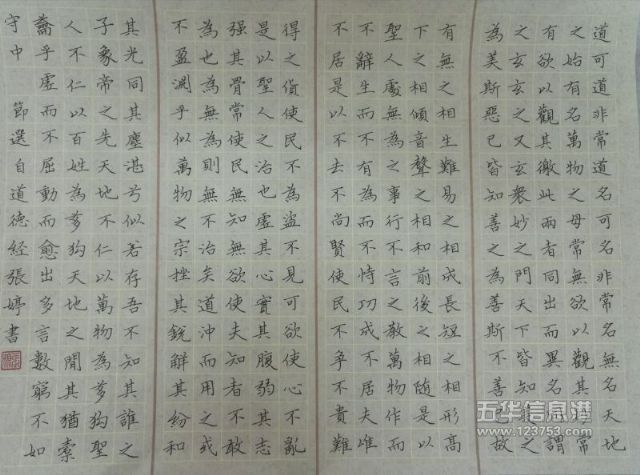 道可道非常道名可名非常名無名天地
之始有名萬物之母常無欲以觀其妙常
有欲以觀其徼此兩者同出而異名同謂
之玄玄之又玄衆妙之門天下皆知美之
為美斯惡已皆知善之為善斯不善已故
有無之相生難易之相成長短之相形高
下之相傾音聲之相和前後之相隨是以
聖人處無為之事行不言之教萬物作而
不辭生而不有為而不恃功成不居夫唯
不居是以不去不尚賢使民不爭不貴難
得之貨使民不為盜不見可欲使心不亂
是以聖人之治也虛其心實其腹弱其志
強其骨常使民無知無欲使夫知者不敢
為也為無為則無不治矣道沖而用之或
不盈淵乎似萬物之宗挫其銳解其紛和
其光同其塵湛兮似若存吾不知其誰之
子象帝之先天地不仁以萬物為芻狗聖
人不仁以百姓為芻狗天地之間其猶橐
籥乎虛而不屈動而愈出多言數窮不如
守中 節選自道德經張婷書
五华信息港
www.123753.com